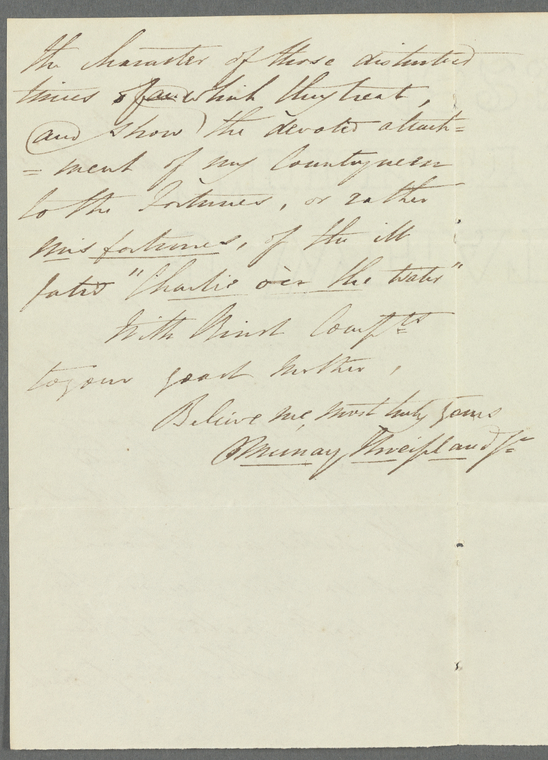 the character of those distracted
times of which they treat,
and show the devoted attach=
=ment of my Countrymen
to the Fortunes, or rather
misfortunes, of the ill
fated "Charlie o'er the water"
With Kind Comp.ts
to your good Mother,
Believe me, most truly yours
P Murray Threipland Jr